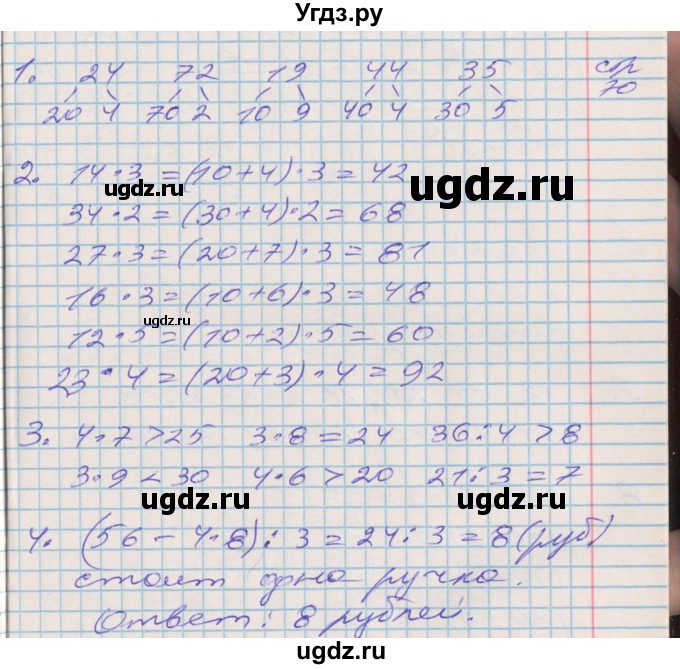 Угдз.ру
1. 24 72 19 44 35 стр
20 4 70 2 10 9 40 4 30 5 70
2. 14 · 3 = (10 + 4) · 3 = 42
ugdz.ru ugdz.ru
34 · 2 = (30 + 4) · 2 = 68
27 · 3 = (20 + 7) · 3 = 81
16 · 3 = (10 + 6) · 3 = 48
ugdz.ru
12 · 5 = (10 + 2) · 5 = 60
23 · 4 = (20 + 3) · 4 = 92
3. 4 · 7 > 25 3 · 8 = 24 36 : 4 > 8
3 · 9 < 30 4 · 6 > 20 21 : 3 = 7
ugdz.ru ugdz.ru
4. (56 - 4 · 8) : 3 = 24 : 3 = 8 (руб)
стоит одна ручка.
Ответ: 8 рублей.
ugdz.ru